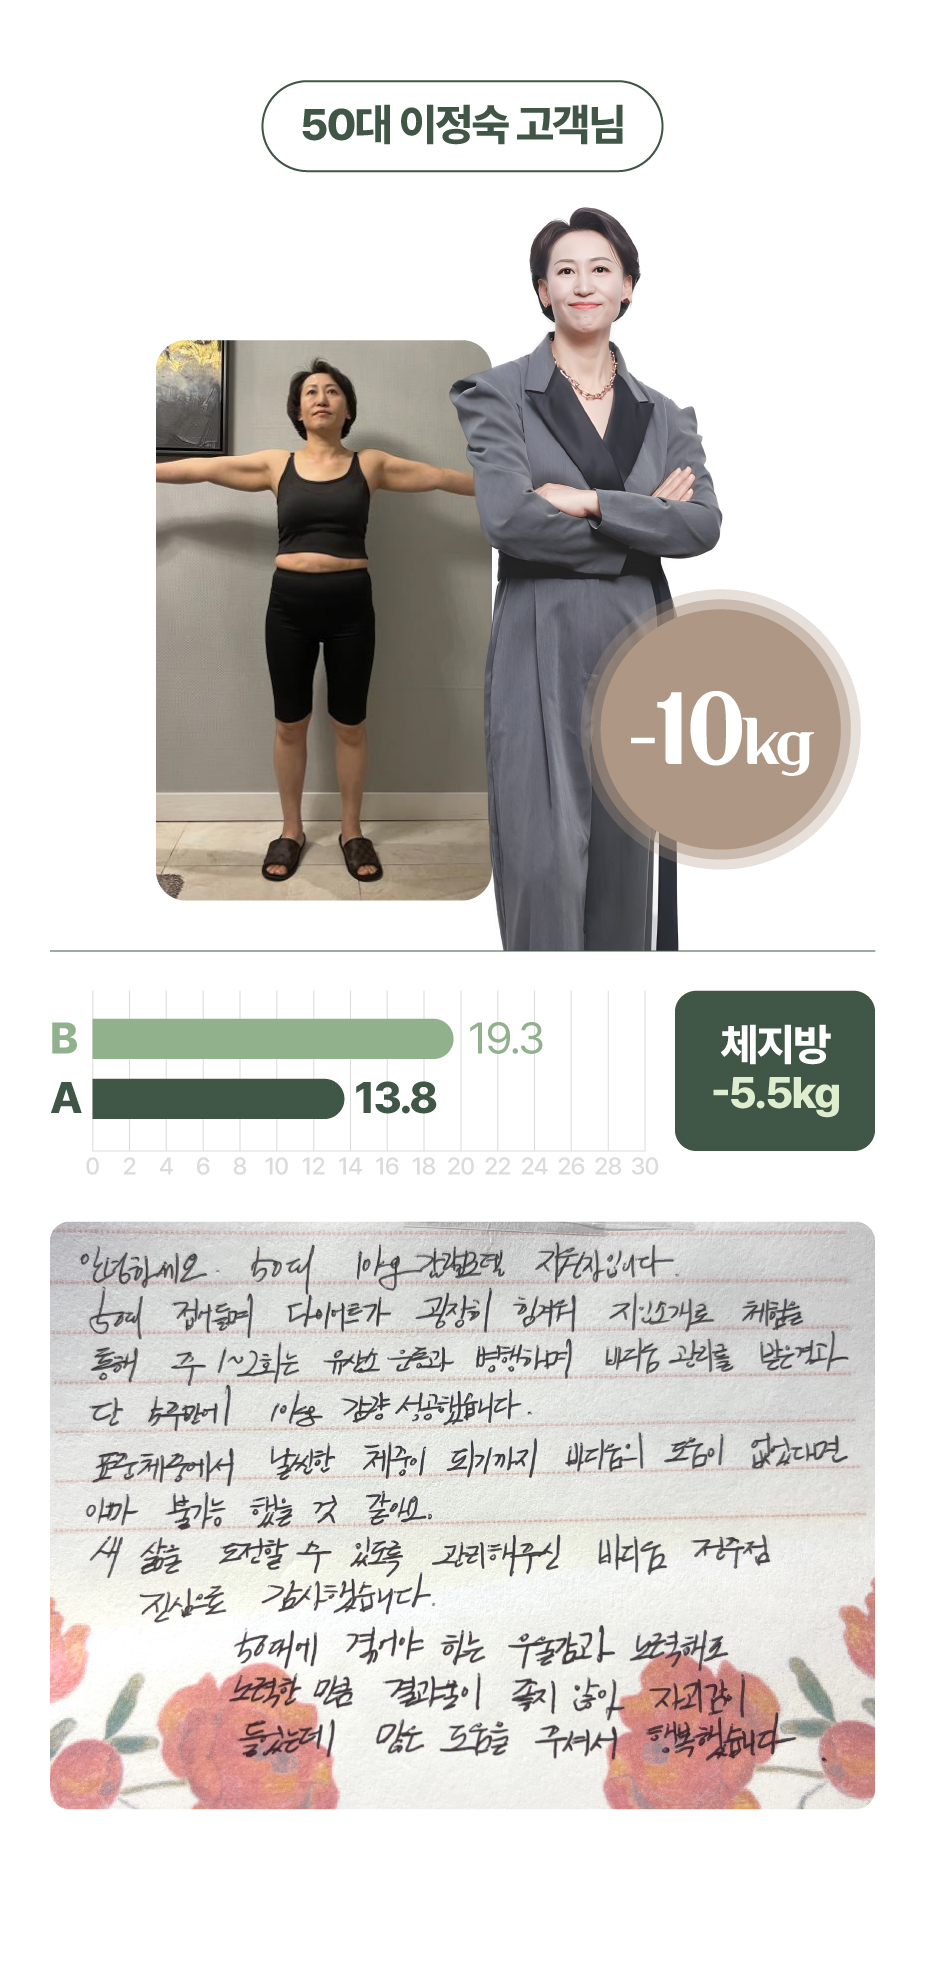 50대 이정숙 고객님
-10kg
B 19.3
A 13.8
0 2 4 6 8 10 12 14 16 18 20 22 24 26 28 30
체지방
-5.5kg
안녕하세요. 50대 10kg 감량모델 지원자입니다.
50대 접어들며 다이어트가 굉장히 힘겨워 지인소개로 체험을
통해 주 1~2회는 유산소 운동과 병행하며 바디움 관리를 받은결과
단 5주만에 10kg 감량 성공했습니다.
표준체중에서 날씬한 체중이 되기까지 바디움의 도움이 없었다면
아마 불가능 했을 것 같아요.
새 삶을 도전할 수 있도록 관리해주신 바디움 전주점
진심으로 감사했습니다.
50대에 겪어야 하는 우울감과 노력해도
노력한 만큼 결과물이 좋지 않아 자괴감이
들었는데 많은 도움을 주셔서 행복했습니다.